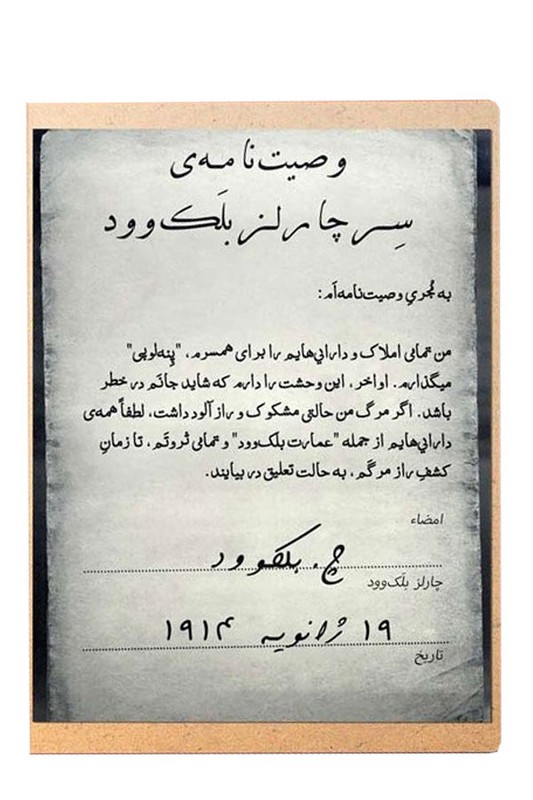 وصیت‌نامه‌ی
سِر چارلز بلَک‌وود
به مُجریِ وصیت‌نامه‌اَم:
من تمامی املاک و دارایی‌هایم را برای همسرم، "پِنه‌لوپی"
میگذارم. اواخر، این وحشت را دارم که شاید جانَم در خطر
باشد. اگر مرگ من حالتی مشکوک و رازآلود داشت، لطفاً همه‌ی
دارایی‌هایم از جمله "عمارت بلک‌وود" و تمامی ثروتَم، تا زمانِ
کشفِ رازِ مرگَم، به حالت تعلیق در بیایند.
امضاء
چ. بلکوود
چارلز بلَک‌وود
۱۹ ژانویه ۱۹۱۴
تاریخ